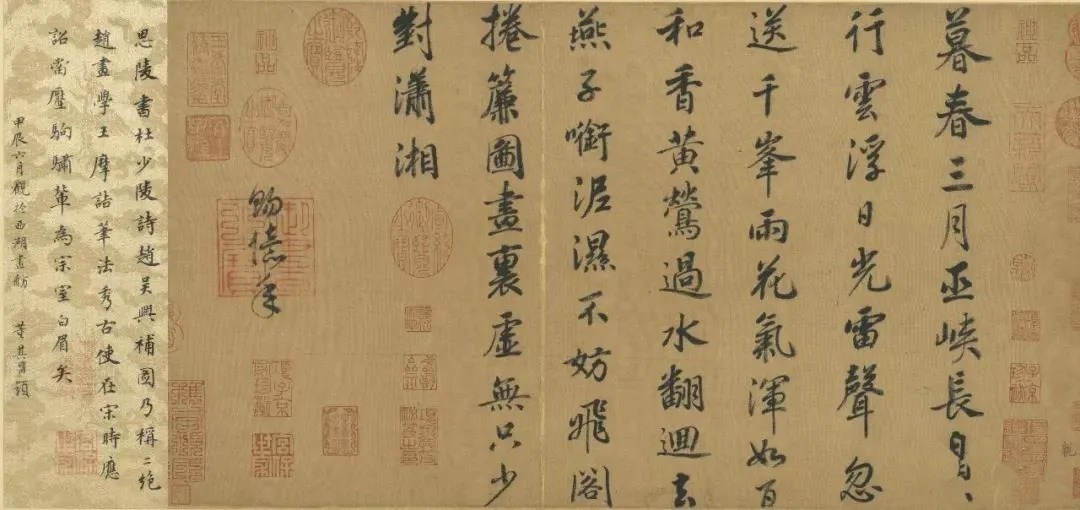 暮春三月巫峽長皛、
行雲浮日光雷聲忽
送千峯雨花氣渾如百
和香黃鶯過水翻迴去
燕子銜泥濕不妨飛閣
捲簾圖畫裏虛無只少
對瀟湘
賜億年
思陵書杜少陵詩趙吳興補圖乃稱二絕
趙畫學王摩詰筆法秀古使在宋時應
詔當壓駒驌輩為宗室白眉矣
甲辰六月觀於西湖畫舫 董其昌題